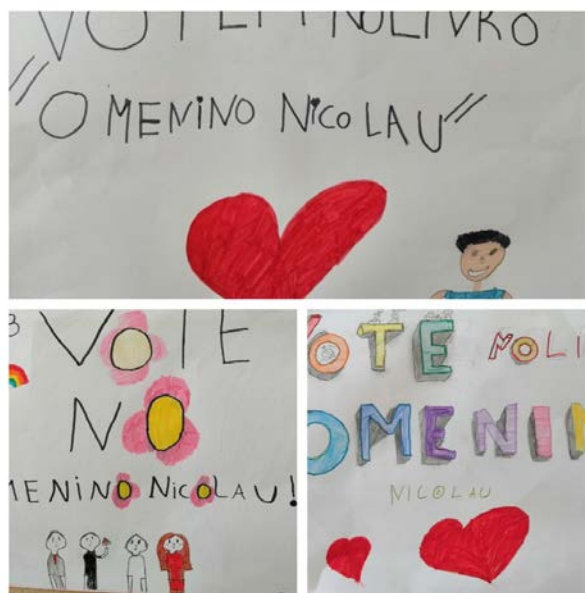 VOTEM NO LIVRO
"O MENINO NICOLAU"
VOTE
NO
MENINO NICOLAU!
VOTE NO LI
O MENIN
NICOLAU